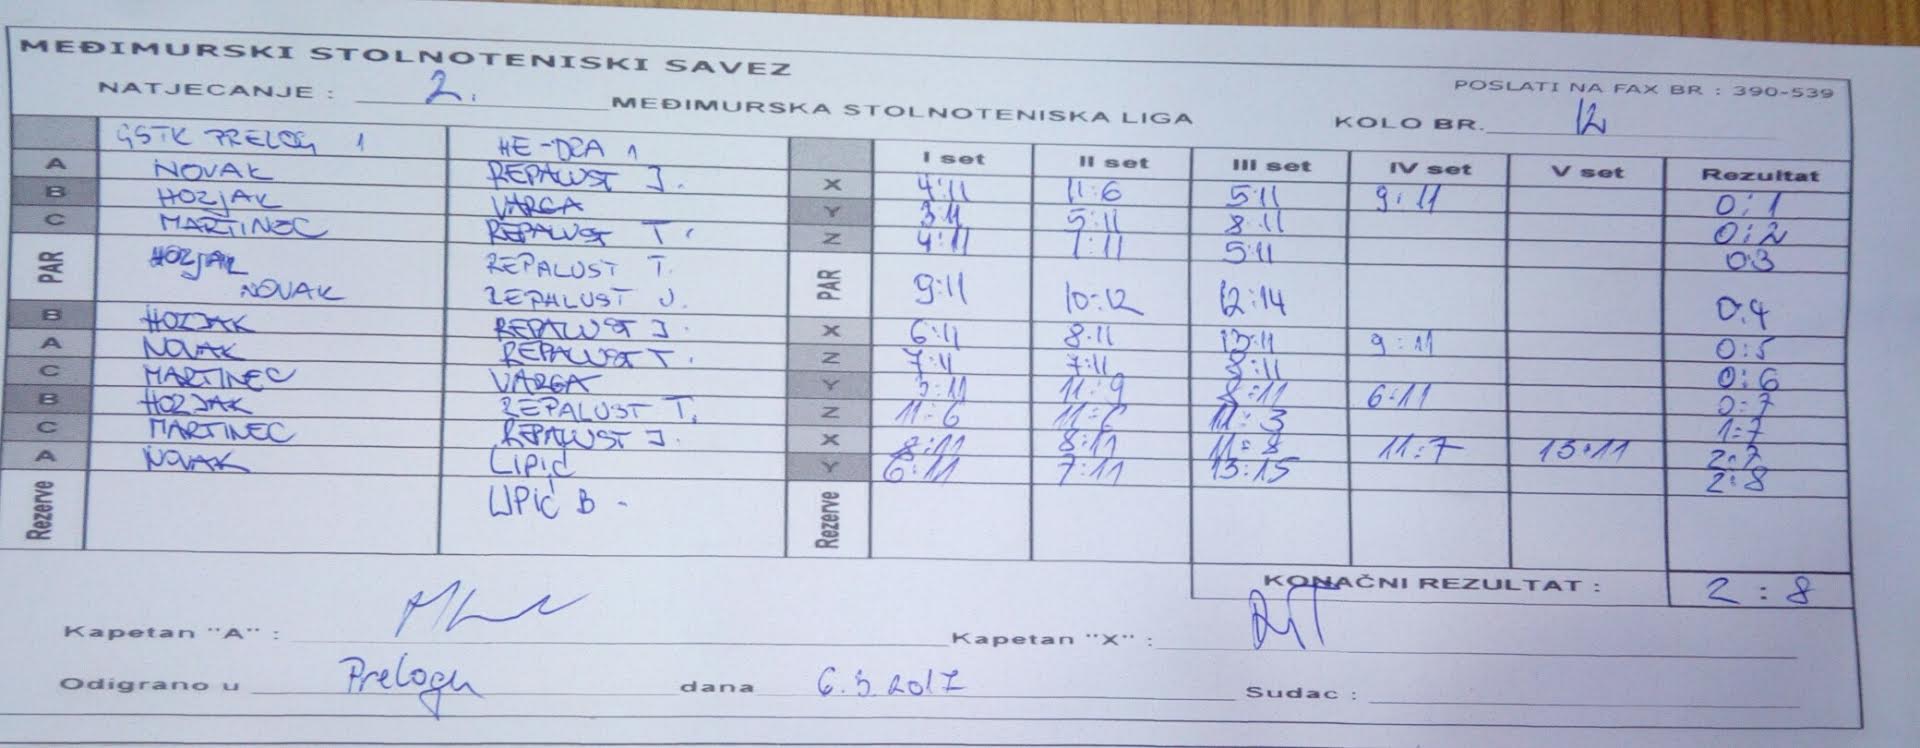 MEĐIMURSKI STOLNOTENISKI SAVEZ
POSLATI NA FAX BR : 390-539
NATJECANJE : 2. MEĐIMURSKA STOLNOTENISKA LIGA KOLO BR. 12
GSTK PRELOG 1 HE-DRA 1 I set II set III set IV set V set Rezultat
A NOVAK REPALUST J. X 4:11 11:6 5:11 9:11 0:1
B HOZJAK VARGA Y 3:11 5:11 8:11 0:2
C MARTINEC REPALUST T. Z 4:11 7:11 5:11 0:3
PAR HOZJAK REPALUST T. PAR
NOVAK REPALUST J. 9:11 10:12 12:14 0:4
B HOZJAK REPALUST J. X 6:11 8:11 13:11 9:11 0:5
A NOVAK REPALUST T. Z 7:11 7:11 8:11 0:6
C MARTINEC VARGA Y 3:11 11:9 8:11 6:11 0:7
B HOZJAK REPALUST T. Z 11:6 11:6 11:3 1:7
C MARTINEC REPALUST J. X 8:11 8:11 11:8 11:7 13:11 2:7
A NOVAK LIPIĆ Y 6:11 7:11 13:15 2:8
Rezerve LIPIĆ B - Rezerve
KONAČNI REZULTAT : 2 : 8
Kapetan "A" : Kapetan "X" :
Odigrano u Prelogu dana 6.3.2017 Sudac :